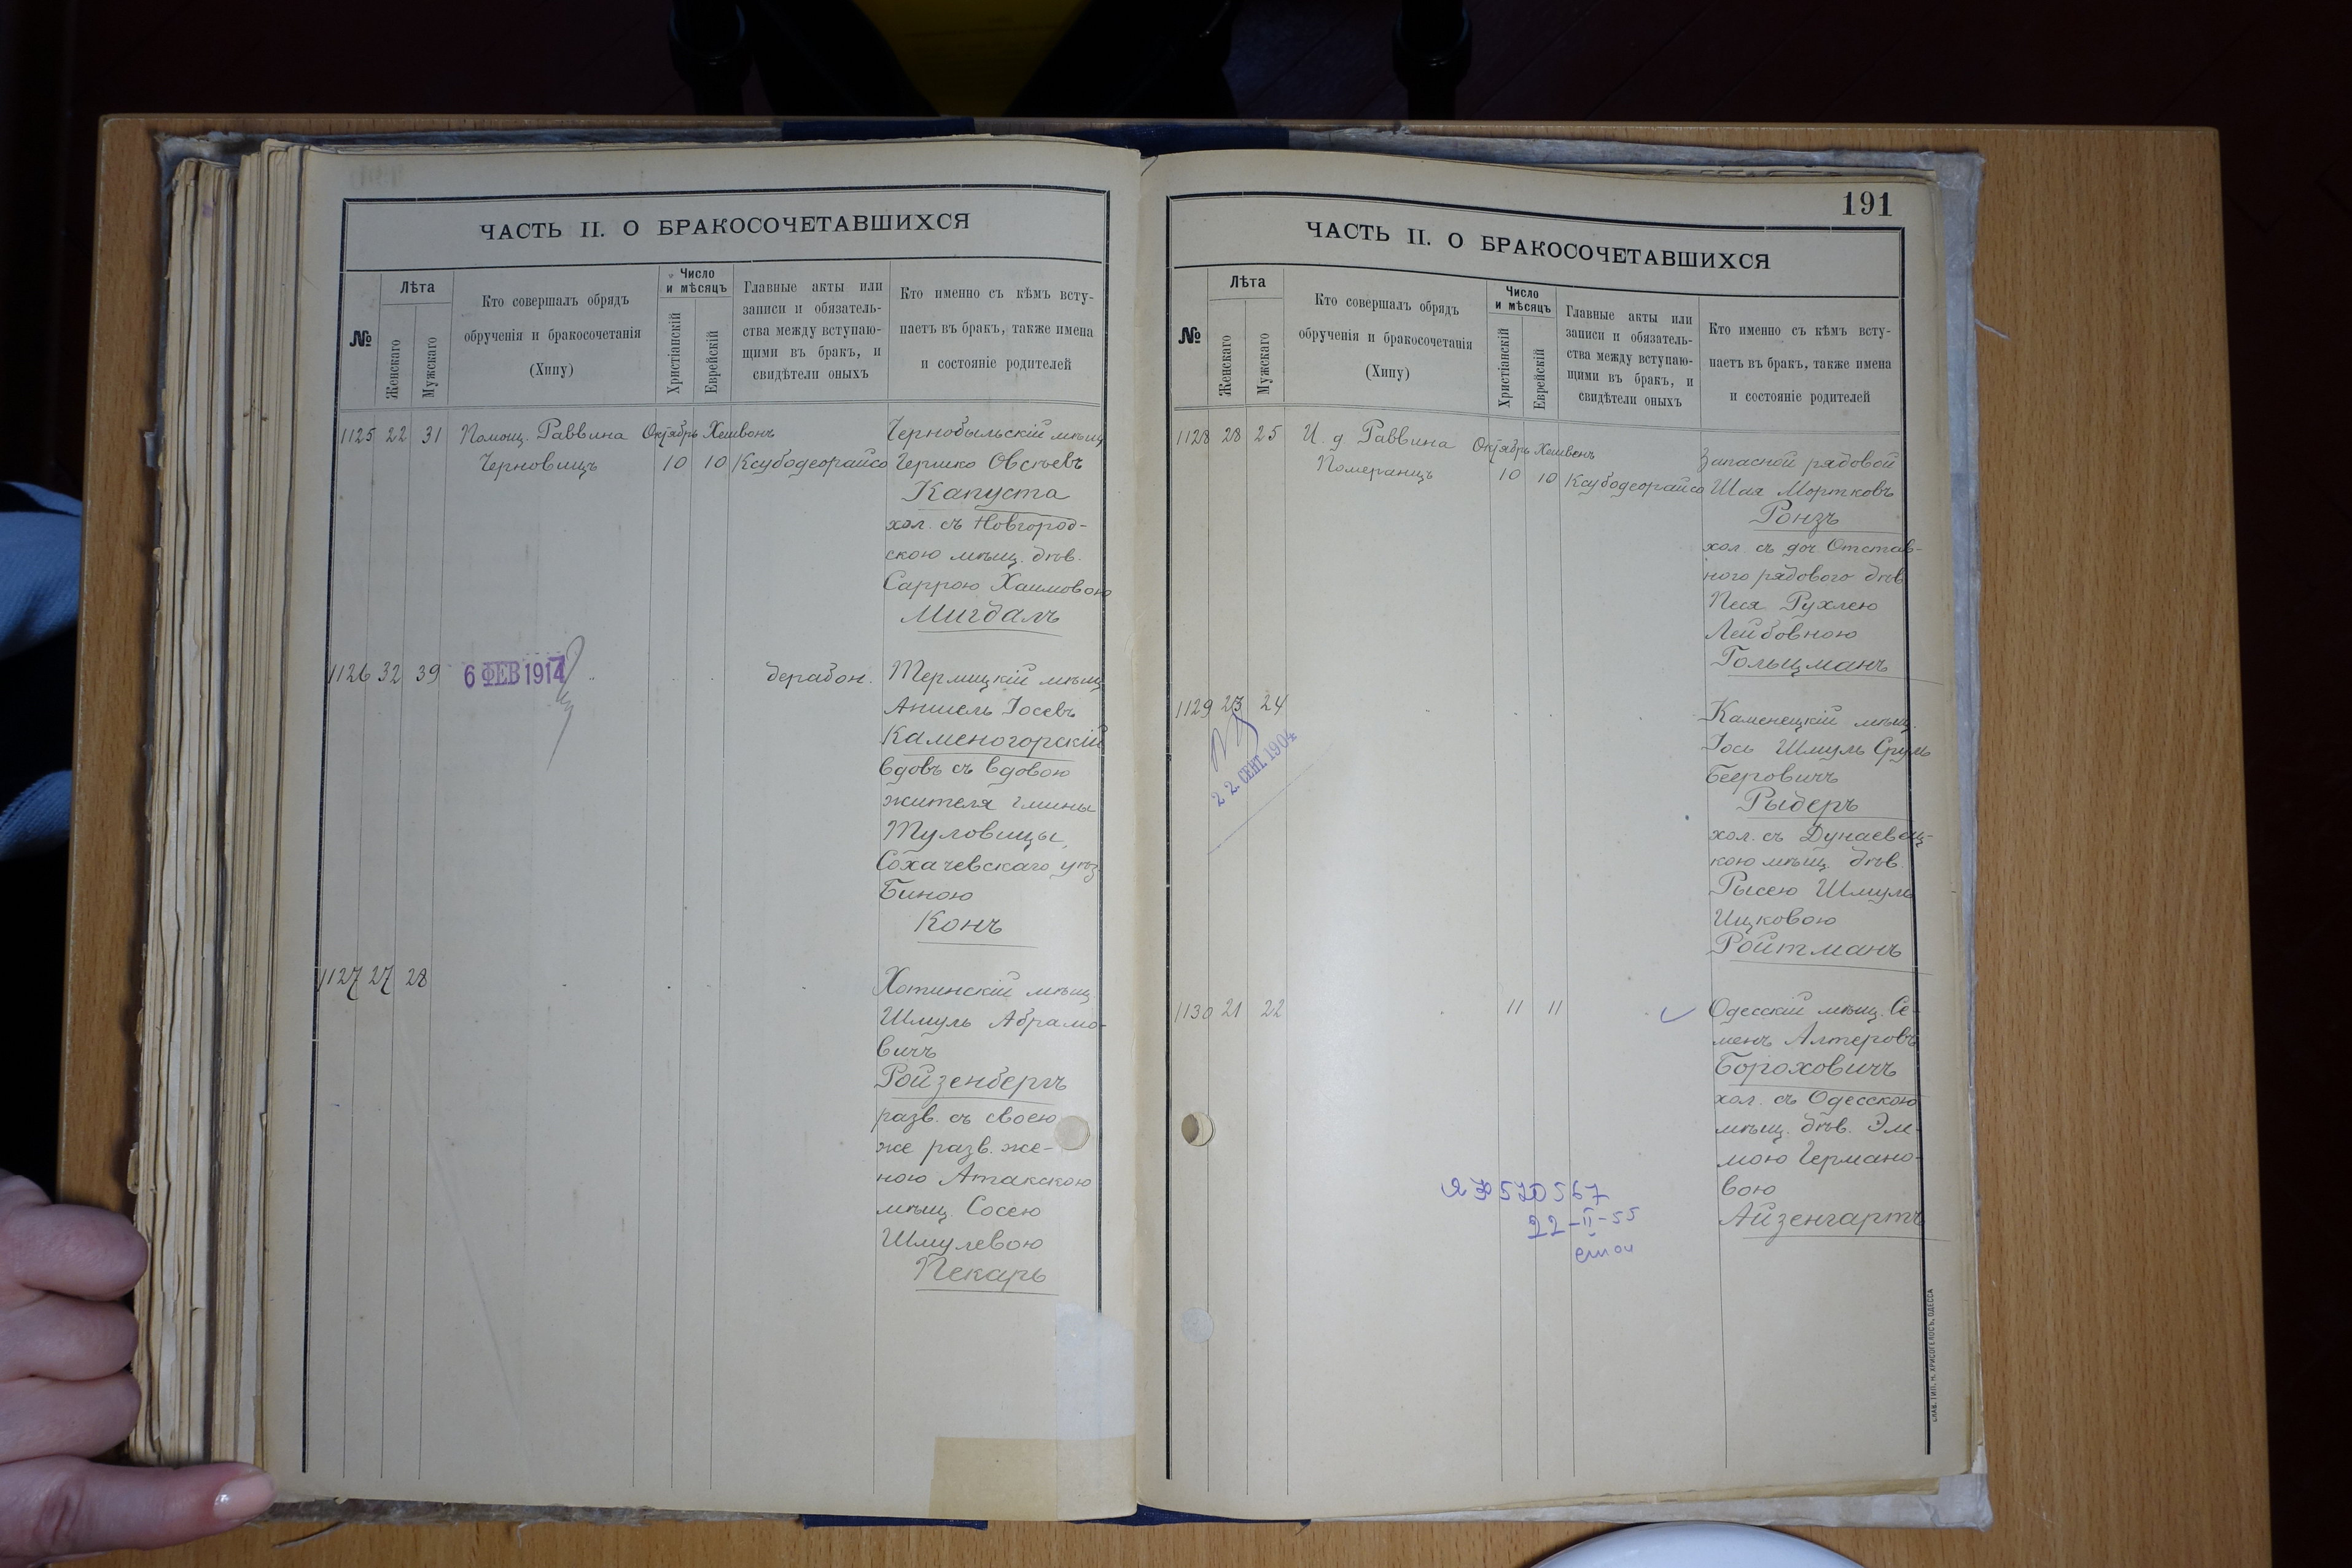 ЧАСТЬ II. О БРАКОСОЧЕТАВШИХСЯ
№
Лѣта
Женскаго
Мужскаго
Кто совершалъ обрядъ
обрученія и бракосочетанія
(Хипу)
Число
и мѣсяцъ
Христіанскій
Еврейскій
Главные акты или
записи и обязатель-
ства между вступаю-
щими въ бракъ, и
свидѣтели оныхъ
Кто именно съ кѣмъ всту-
паетъ въ бракъ, также имена
и состояніе родителей
1125 22 31 Помощ. Раввина Октябрь Хешвонъ Чернобыльскій мѣщ
Черновицъ 10 10 Ксубодеорайсо Гершко Овсѣевъ
Капуста
хол. съ Новгород-
скою мѣщ. дѣв.
Саррою Хаимовою
Мигдалъ
1126 32 39 6 ФЕВ 1914 дерабон. мѣщ
Аншель Іосевъ
Каменогорскій
вдовъ съ вдовою
жителя гмины
Туловицы,
Сохачевскаго уѣз.
Биною
Конъ
1127 27 28 Хотинскій мѣщ.
Шмуль Абрамо-
вичъ
Ройзенбергъ
разв. съ своею
же разв. же-
ною Атакскою
мѣщ. Сосею
Шмулевою
Пекарь
191
ЧАСТЬ II. О БРАКОСОЧЕТАВШИХСЯ
№
Лѣта
Женскаго
Мужскаго
Кто совершалъ обрядъ
обрученія и бракосочетанія
(Хипу)
Число
и мѣсяцъ
Христіанскій
Еврейскій
Главные акты или
записи и обязатель-
ства между вступаю-
щими въ бракъ, и
свидѣтели оныхъ
Кто именно съ кѣмъ всту-
паетъ въ бракъ, также имена
и состояніе родителей
1128 28 25 И. д. Раввина Октябрь Хешвонъ Запасной рядовой
Померанцъ 10 10 Ксубодеорайсо Шая Мортковъ
Ронзъ
хол. съ доч. Отстав-
ного рядового дѣв
Песя Рухлею
Лейбовною
Гольцманъ
1129 23 24 Каменецкій мѣщ.
Іось Шмуль Сруль
Бееровичъ
Рыдеръ
22. СЕНТ. 1904
хол. съ Дунаевец-
кою мѣщ. дѣв.
Рысею Шмуль
Ицковою
Ройтманъ
1130 21 22 11 11 Одесскій мѣщ. Се-
менъ Алтеровъ
Бороховичъ
хол. съ Одесскою
мѣщ. дѣв. Эм-
мою Германо-
вою
Айзенгартъ
22-II-55
СЛАВ. ТИП. Н. ХРИСОГЕЛОСЪ, ОДЕССА